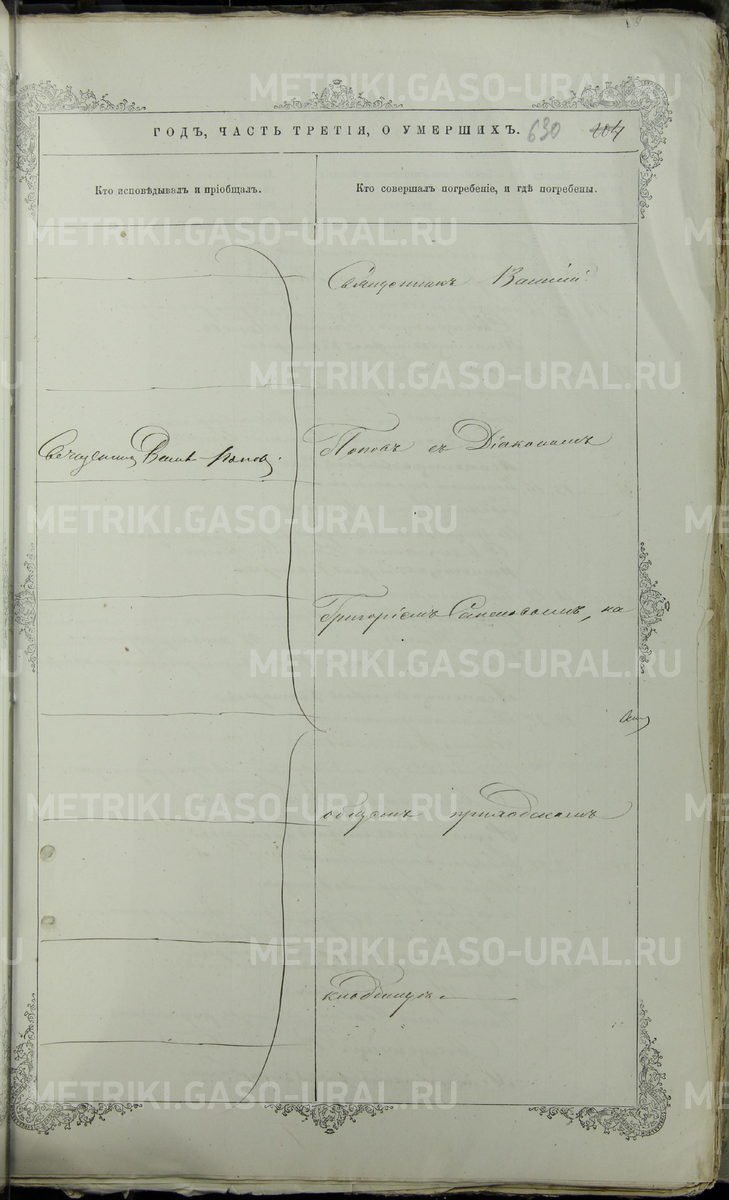 ГОДЪ, ЧАСТЬ ТРЕТІЯ, О УМЕРШИХЪ. 630 104
Кто исповѣдывалъ и пріобщалъ.
Кто совершалъ погребеніе, и гдѣ погребены.
Священникъ Василій
Священ Васил Попов.
Поповъ съ Діакономъ
Григоріемъ на
общемъ приходскомъ
кладбищѣ.
METRIKI.GASO-URAL.RU